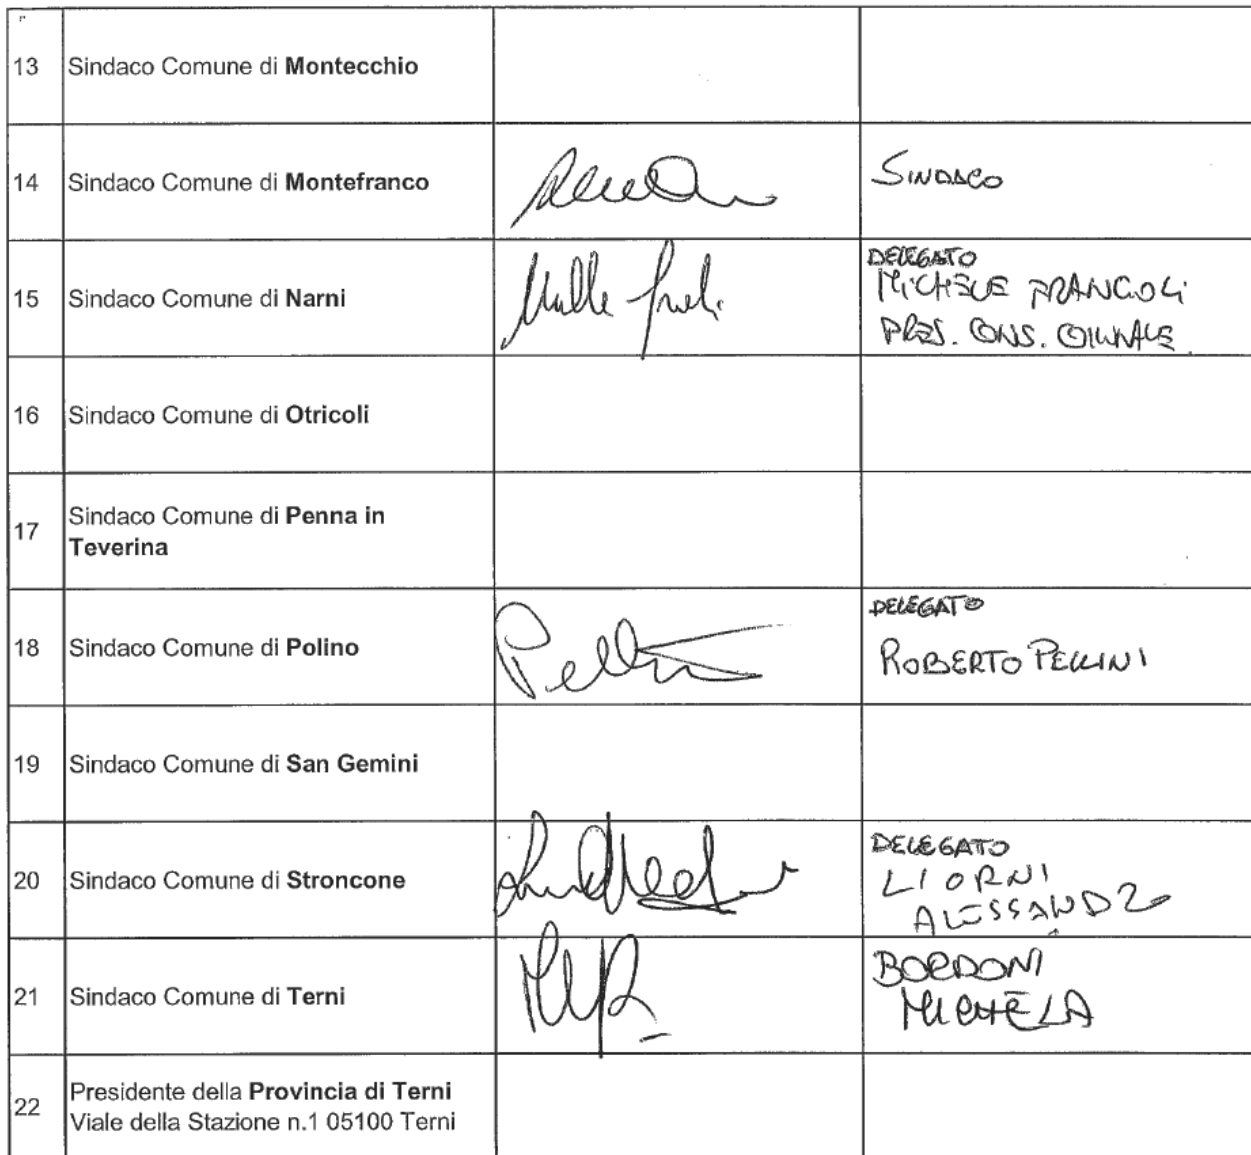 13 Sindaco Comune di Montecchio
14 Sindaco Comune di Montefranco SINDACO
15 Sindaco Comune di Narni DELEGATO
MICHELE FRANCOLI
PRES. CONS. COMUNALE
16 Sindaco Comune di Otricoli
17 Sindaco Comune di Penna in
Teverina
18 Sindaco Comune di Polino DELEGATO
ROBERTO PELLINI
19 Sindaco Comune di San Gemini
20 Sindaco Comune di Stroncone DELEGATO
LIORNI
ALESSANDRO
21 Sindaco Comune di Terni BORDONI
MICHELA
22 Presidente della Provincia di Terni
Viale della Stazione n.1 05100 Terni